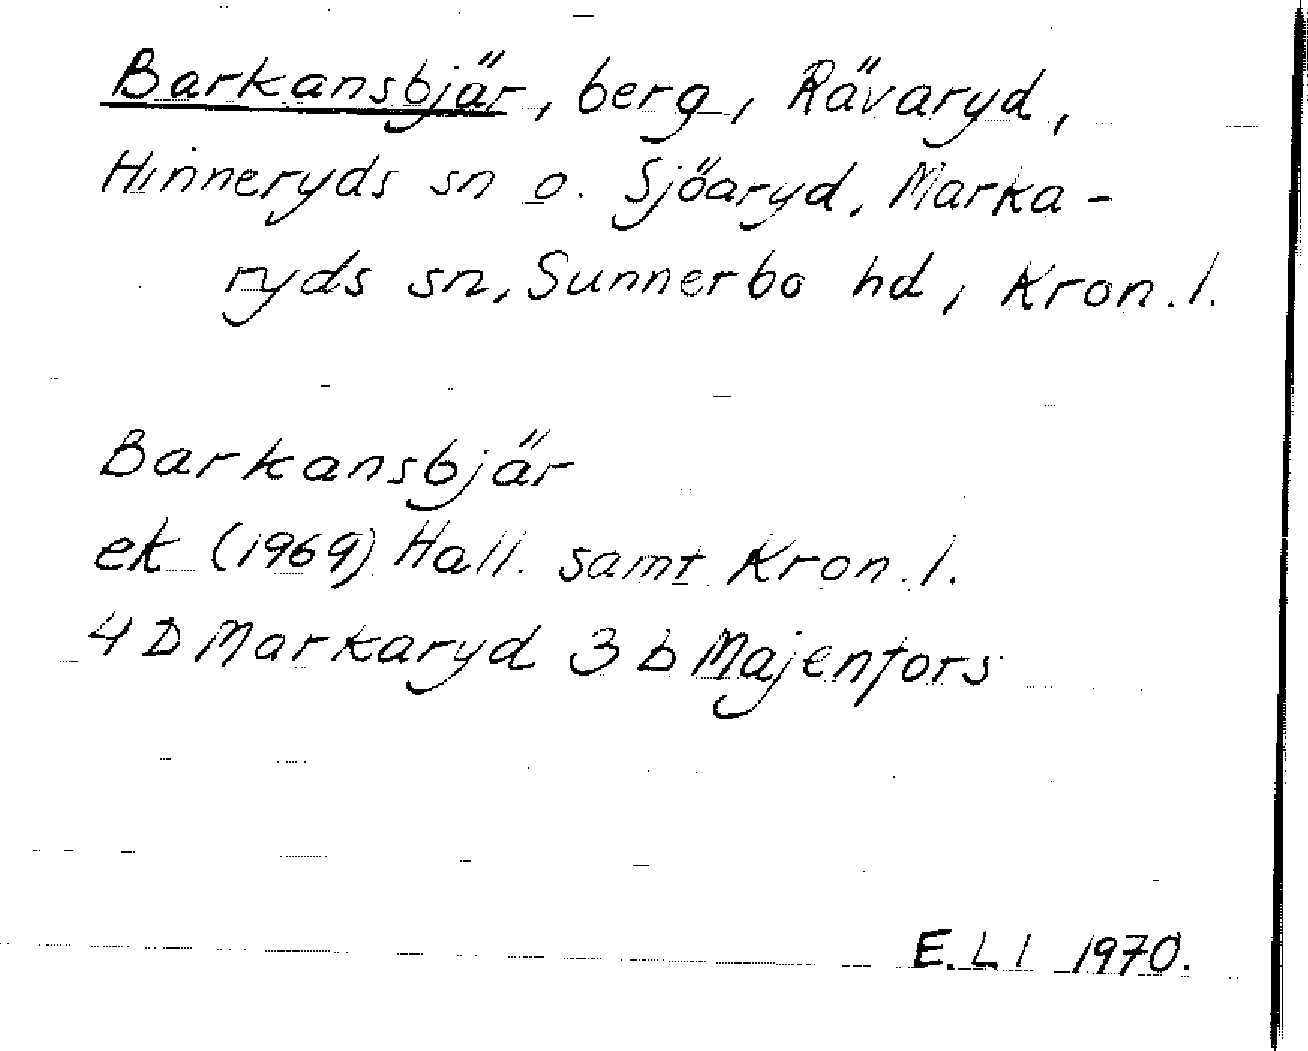 Barkansbjär, berg, Rävaryd,
Hinneryds sn o. Sjöaryd, Marka-
ryds sn, Sunnerbo hd, Kron. l.
Barkansbjär
ek (1969) Hall. samt Kron. l.
4 D Markaryd 3 b Majenfors
E. L l 1970.